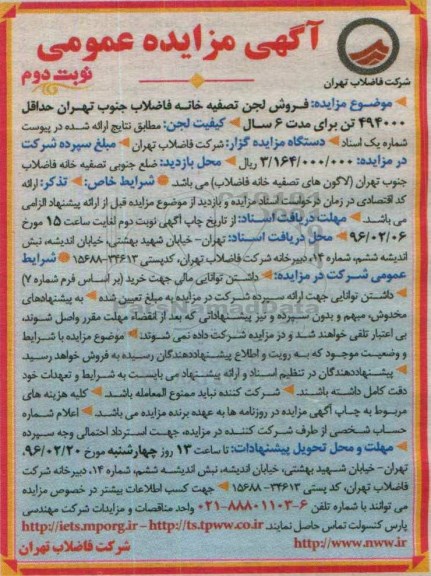 آگهی مزایده عمومی
نوبت دوم
شرکت فاضلاب تهران
موضوع مزایده: فروش لجن تصفیه خانه فاضلاب جنوب تهران حداقل
۴۹۴۰۰۰ تن برای مدت ۶ سال کیفیت لجن: مطابق نتایج ارائه شده در پیوست
شماره یک اسناد دستگاه مزایده گزار: شرکت فاضلاب تهران مبلغ سپرده شرکت
در مزایده: ۳/۱۶۴/۰۰۰/۰۰۰ ریال محل بازدید: ضلع جنوبی تصفیه خانه فاضلاب
جنوب تهران (لاگون های تصفیه خانه فاضلاب) می باشد شرایط خاص: تذکر: ارائه
کد اقتصادی در زمان درخواست اسناد مزایده و بازدید از موضوع مزایده قبل از ارائه پیشنهاد الزامی
می باشد. مهلت دریافت اسناد: از تاریخ چاپ آگهی نوبت دوم لغایت ساعت ۱۵ مورخ
۹۶/۰۲/۰۶ محل دریافت اسناد: تهران- خیابان شهید بهشتی، خیابان اندیشه، نبش
اندیشه ششم، شماره ۱۴، دبیرخانه شرکت فاضلاب تهران، کدپستی ۳۴۶۱۳-۱۵۶۸۸ شرایط
عمومی شرکت در مزایده: داشتن توانایی مالی جهت خرید (بر اساس فرم شماره ۷)
داشتن توانایی جهت ارائه سپرده شرکت در مزایده به مبلغ تعیین شده به پیشنهادهای
مخدوش، مبهم و بدون سپرده و نیز پیشنهاداتی که بعد از انقضاء مهلت مقرر واصل شوند،
بی اعتبار تلقی خواهند شد و در مزایده شرکت داده نمی شوند. موضوع مزایده با شرایط
و وضعیت موجود که به رویت و اطلاع پیشنهاددهندگان رسیده به فروش خواهد رسید.
پیشنهاددهندگان در تنظیم اسناد و ارائه پیشنهاد می بایست به شرایط و تعهدات خود
دقت کامل داشته باشند. شرکت کننده نباید ممنوع المعامله باشد. کلیه هزینه های
مربوط به چاپ آگهی مزایده در روزنامه ها به عهده برنده مزایده می باشد. اعلام شماره
حساب شخصی از طرف شرکت کننده در مزایده، جهت استرداد احتمالی وجه سپرده
مهلت و محل تحویل پیشنهادات: تا ساعت ۱۳ روز چهارشنبه مورخ ۹۶/۰۲/۲۰.
تهران- خیابان شهید بهشتی، خیابان اندیشه، نبش اندیشه ششم، شماره ۱۴، دبیرخانه شرکت
فاضلاب تهران، کد پستی ۳۴۶۱۳-۱۵۶۸۸ جهت کسب اطلاعات بیشتر در خصوص مزایده
می توانند با شماره تلفن ۶-۸۸۸۰۱۱۰۳-۰۲۱ واحد مناقصات و مزایدات شرکت مهندسی
پارس کنسولت تماس حاصل نمایند. http://iets.mporg.ir – http://ts.tpww.co.ir
http://www.nww.ir
شرکت فاضلاب تهران